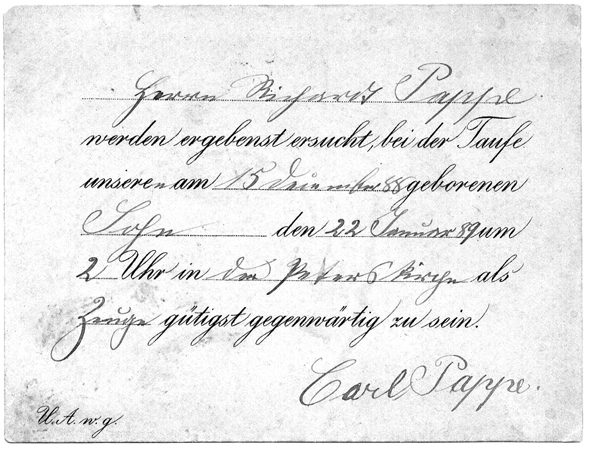 Herrn Richard Pappe
werden ergebenst ersucht, bei der Taufe
unseren am 15 Dezember 88 geborenen
Sohn den 22 Januar 89 um
2 Uhr in der Peterskirche als
Zeuge gütigst gegenwärtig zu sein.
Carl Pappe.
U. A. w. g.